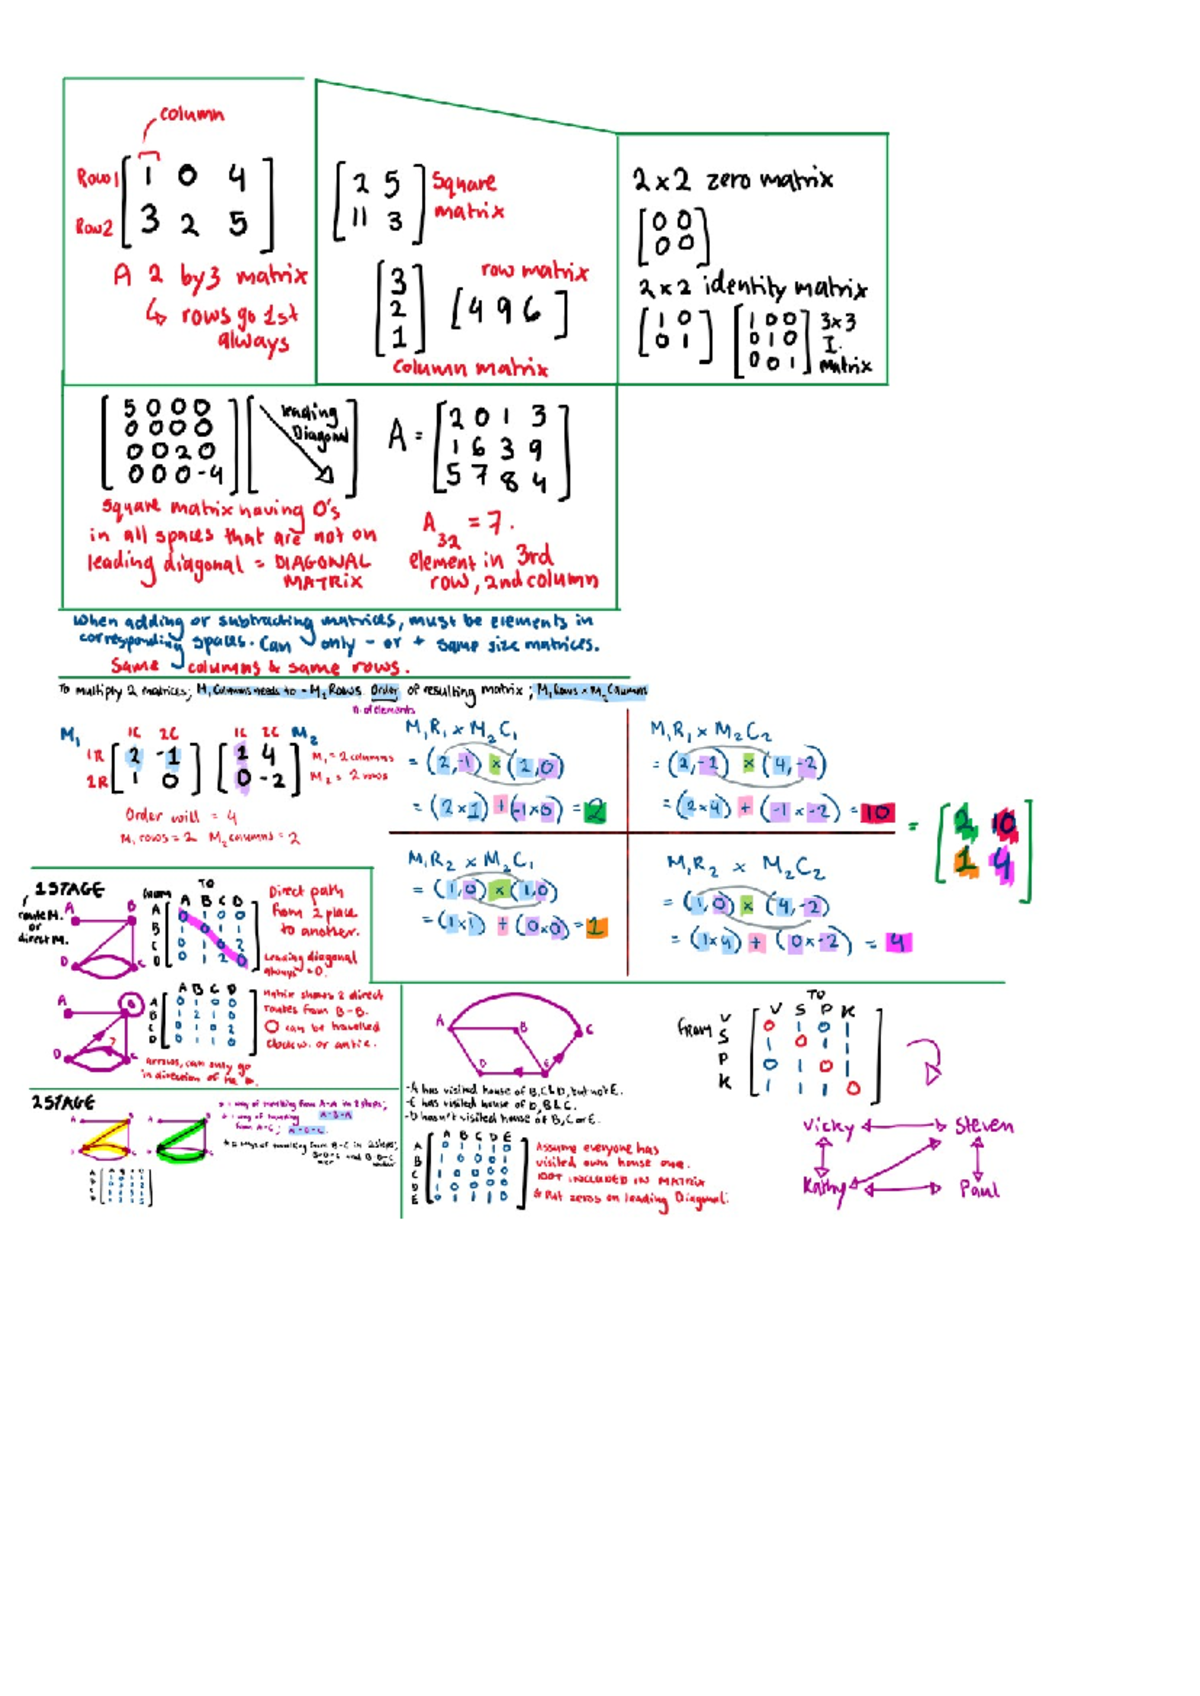 column
Row1 [1 0 4
Row2 3 2 5]
A 2 by 3 matrix
↳ rows go 1st
always
[2 5
11 3] Square
matrix
[3
2
1]
row matrix
[4 9 6]
column matrix
2 x 2 zero matrix
[0 0
0 0]
2 x 2 identity matrix
[1 0
0 1]
[1 0 0
0 1 0
0 0 1] 3x3
I.
matrix
[5 0 0 0
0 0 0 0
0 0 2 0
0 0 0 -4]
leading
Diagonal
square matrix having 0's
in all spaces that are not on
leading diagonal = DIAGONAL
MATRIX
A = [2 0 1 3
1 6 3 9
5 7 8 4]
A32 = 7.
element in 3rd
row, 2nd column
when adding or subtracting matrices, must be elements in
corresponding spaces. Can only - or + same size matrices.
Same columns & same rows.
To multiply 2 matrices; M1 Columns needs to = M2 Rows. Order of resulting matrix; M1 Rows x M2 Columns
n. of elements
M1 1C 2C
1R [2 -1
2R 1 0]
1C 2C M2
[1 4
0 -2]
M1 = 2 columns
M2 = 2 rows
Order will = 4
M1 rows = 2 M2 columns = 2
M1R1 x M2C1
= (2,-1) x (1,0)
= (2x1) + (-1x0) = 2
M1R1 x M2C2
= (2,-1) x (4,-2)
= (2x4) + (-1x-2) = 10
M1R2 x M2C1
= (1,0) x (1,0)
= (1x1) + (0x0) = 1
M1R2 x M2C2
= (1,0) x (4,-2)
= (1x4) + (0x-2) = 4
= [2 10
1 4]
1 STAGE
route M.
or
direct M.
A B
D C
TO
from A B C D
A 0 1 0 0
B 1 0 1 1
C 0 1 0 2
D 0 1 2 0
Direct path
from 2 place
to another.
Leading diagonal
always = 0.
A
D C
A B C D
A 0 1 0 0
B 1 2 1 0
C 0 1 0 2
D 0 1 1 0
Matrix shows 2 direct
routes from B-B.
O can be travelled
clockw. or antic.
arrows, can only go
in direction of the
2 STAGE
1 way of travelling from A-A in 2 steps;
A-B-A
from A-C; A-B-C.
ways of travelling from B-C in 2 steps;
A B C
D E
-A has visited house of B, C & D, but not E.
-E has visited house of D, B & C.
-D hasn't visited house of B, C or E.
A B C D E
A 0 1 1 1 0
B 1 0 0 0 1
C 1 0 0 0 0
D 1 0 0 0 0
E 0 1 1 1 0
Assume everyone has
visited own house one.
NOT INCLUDED IN MATRIX
& Put zeros on leading Diagonal.
TO
V S P K
from V 0 1 0 1
S 1 0 1 1
P 0 1 0 1
K 1 1 1 0
Vicky Steven
Kathy Paul